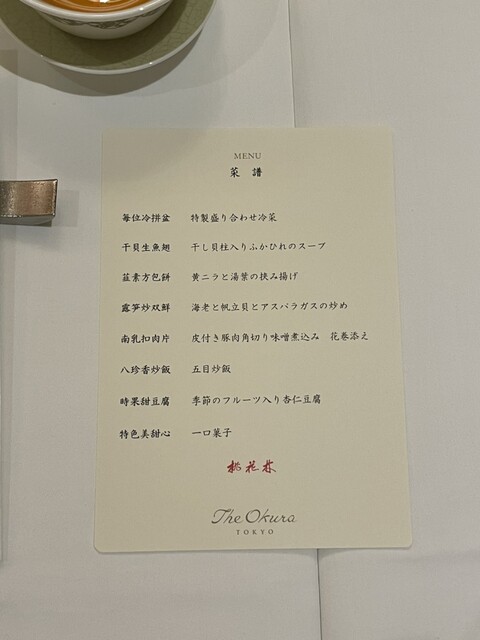 MENU
菜譜
毎位冷拼盆 特製盛り合わせ冷菜
干貝生魚翅 干し貝柱入りふかひれのスープ
韮素方包餅 黄ニラと湯葉の挟み揚げ
露笋炒双鮮 海老と帆立貝とアスパラガスの炒め
南乳扣肉片 皮付き豚肉角切り味噌煮込み 花巻添え
八珍香炒飯 五目炒飯
時果甜豆腐 季節のフルーツ入り杏仁豆腐
特色美甜心 一口菓子
桃花林
The Okura
TOKYO